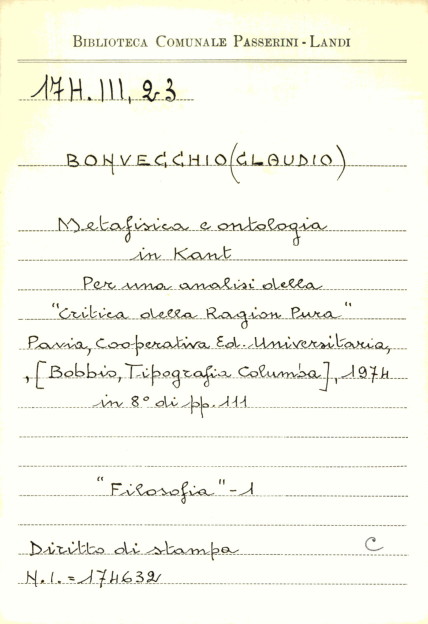 BIBLIOTECA COMUNALE PASSERINI - LANDI
17H.III, 23
BONVECCHIO (CLAUDIO)
Metafisica e ontologia
in Kant
Per una analisi della
"Critica della Ragion Pura"
Pavia, Cooperativa Ed. Universitaria,
, [Bobbio, Tipografia Columba], 1974
in 8° di pp. 111
"Filosofia" - 1
Diritto di stampa C
N.I. = 174632